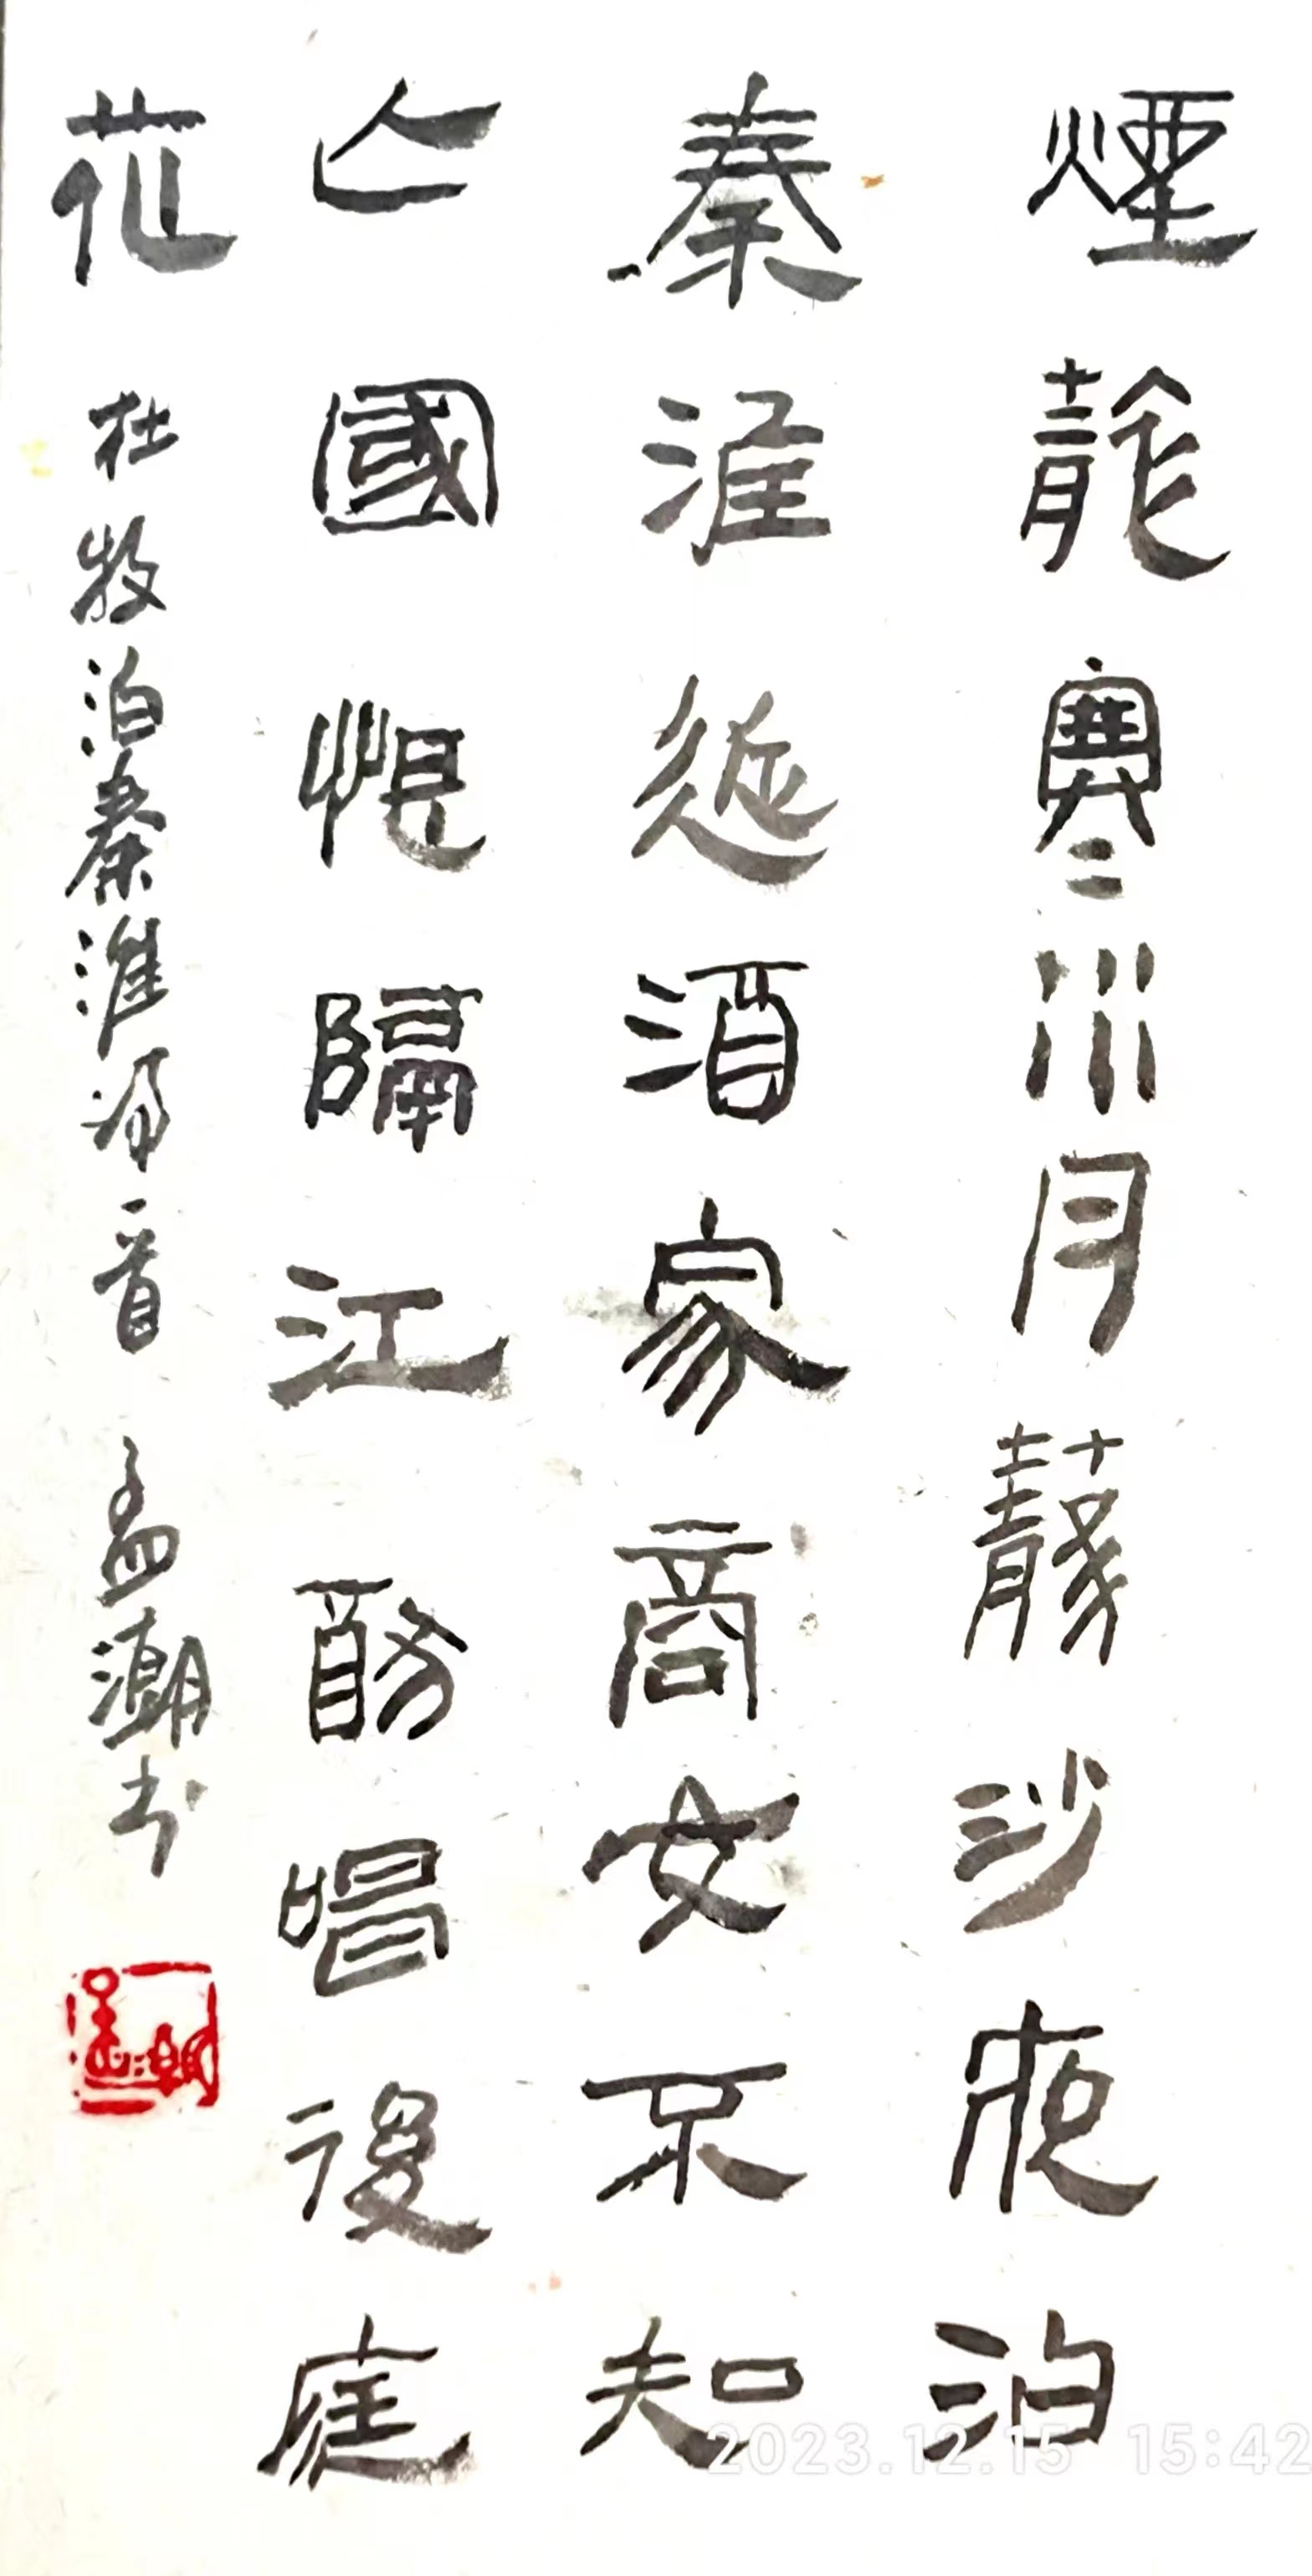 煙籠寒水月籠沙夜泊
秦淮近酒家商女不知
亡國恨隔江猶唱後庭
花 杜牧泊秦淮詩一首 孟潮书
2023.12.15 15:42